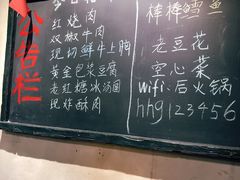 公告栏
红烧肉
双椒牛肉
现切鲜牛上胸
黄金包浆豆腐
老红糖冰汤圆
现炸酥肉
棒棒鳕鱼
老豆花
空心菜
wifi:后火锅
hhg123456